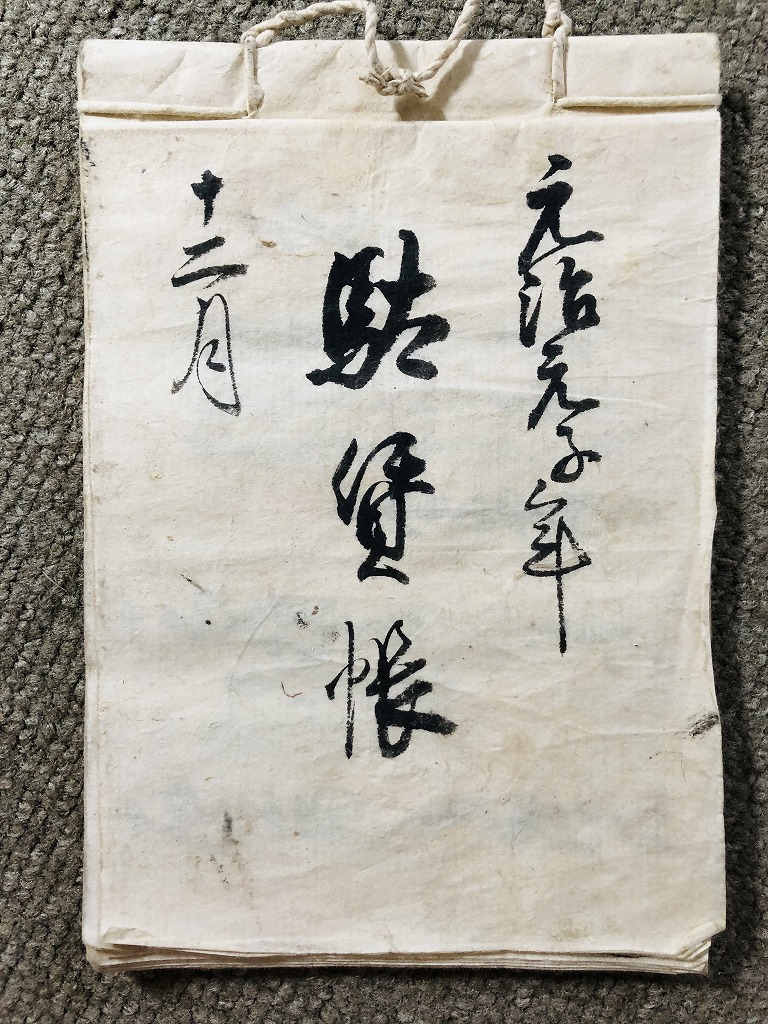 元治元子年
駄賃帳
十二月